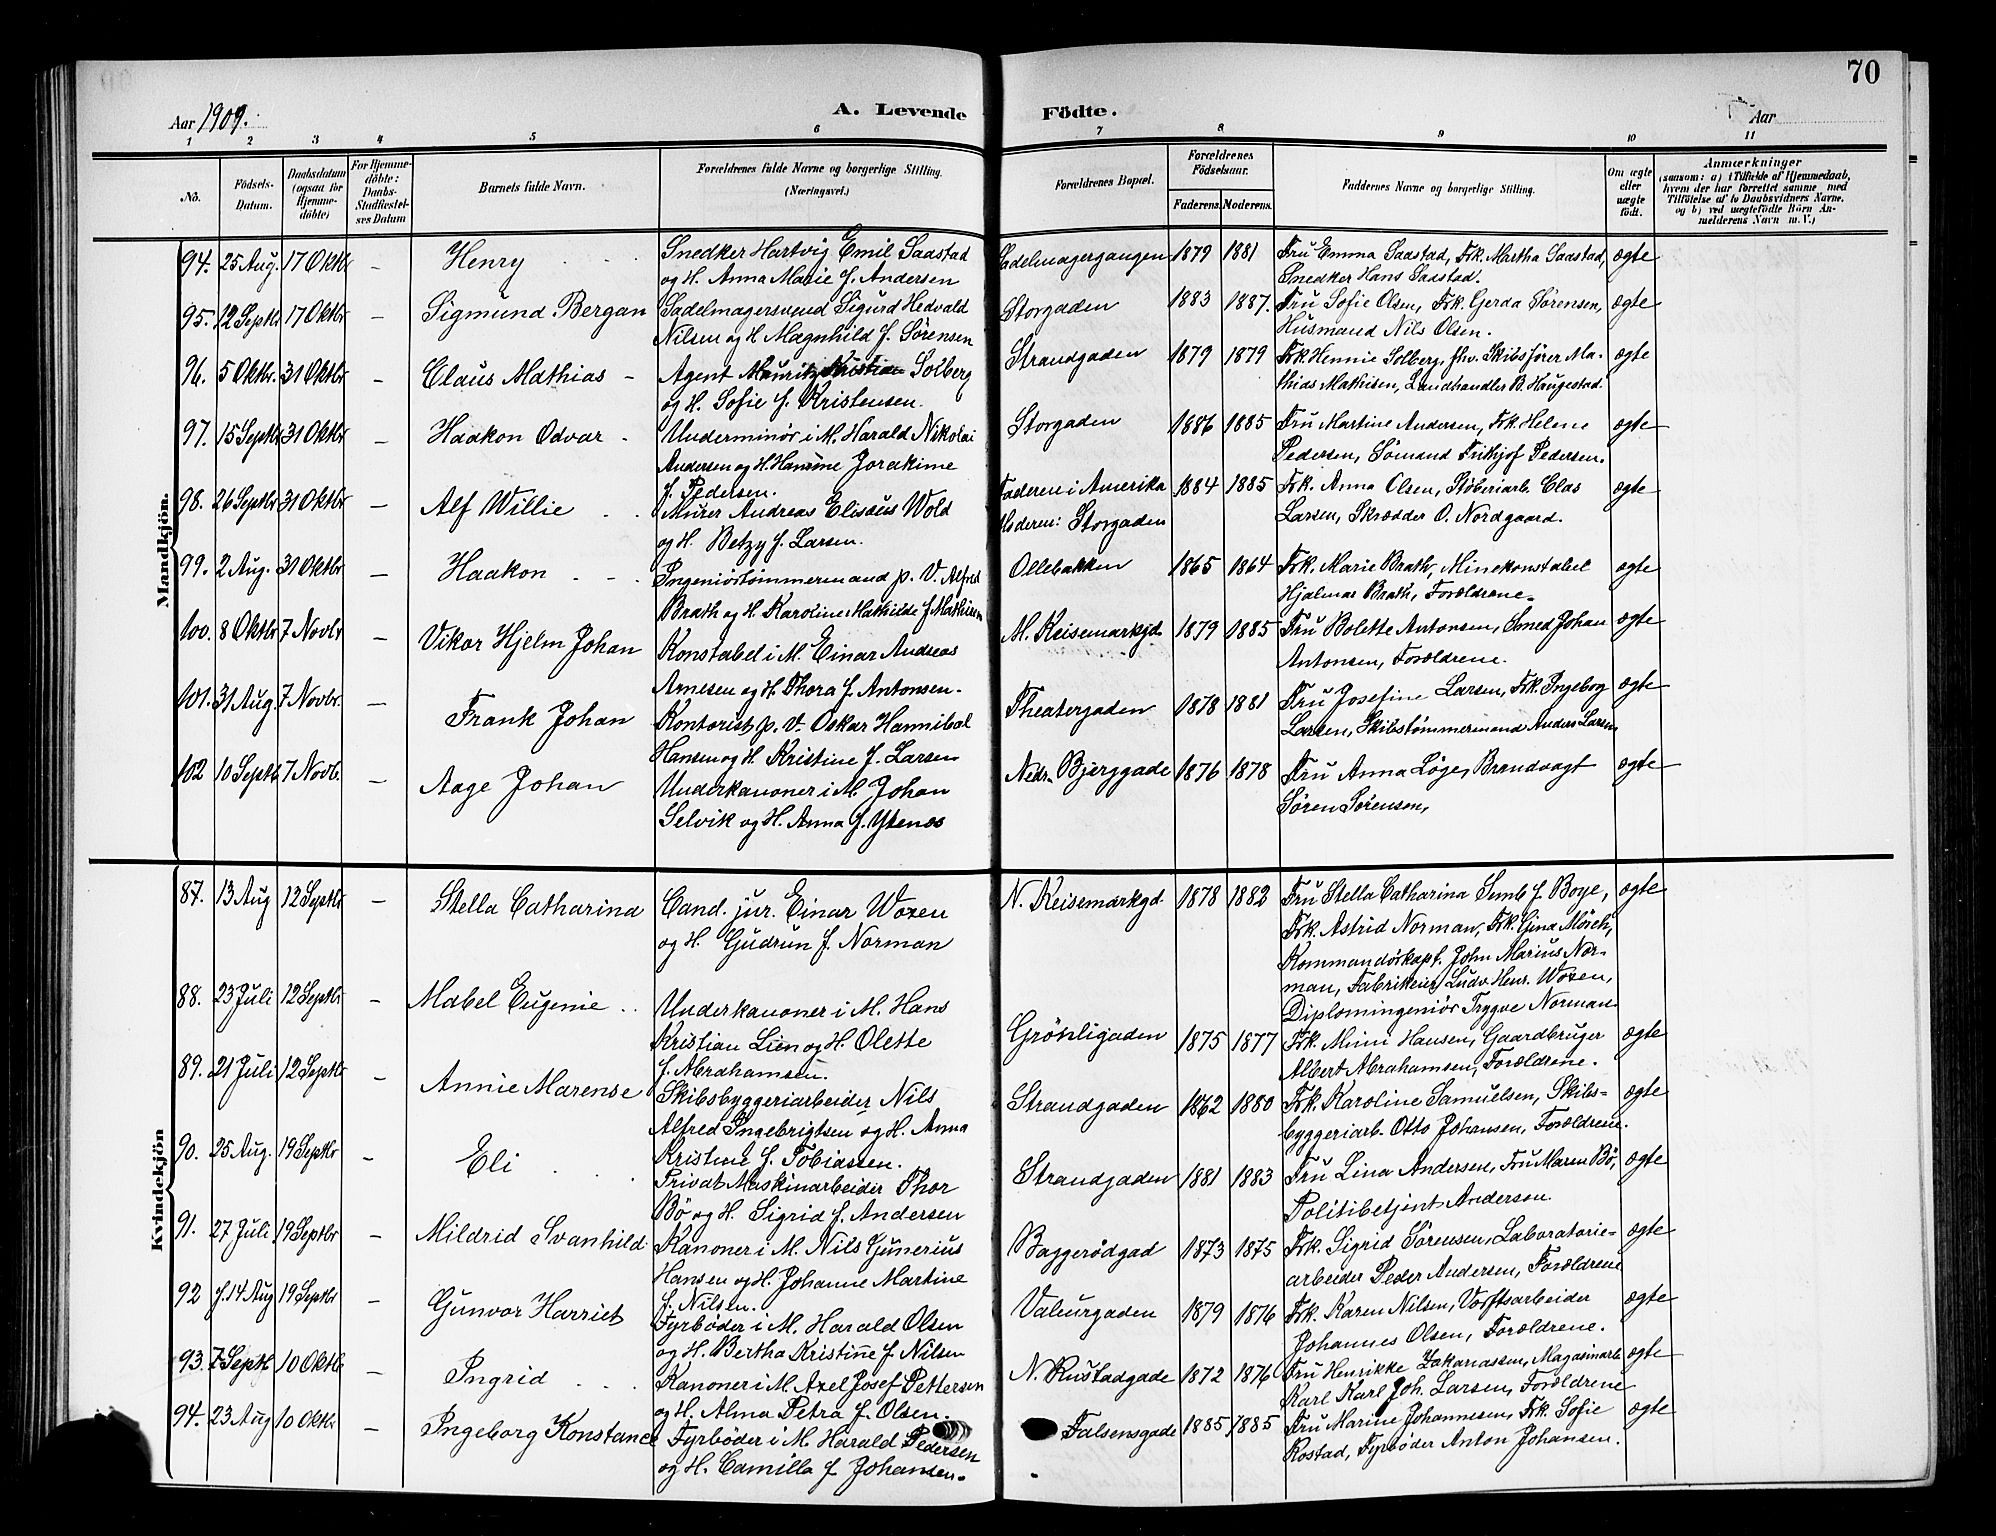 70
Aar 1909.
A. Levende Födte.
Aar
1 2 3 4 5 6 7 8 9 10 11
No.
Födsels-Datum.
Daabsdatum (ogsaa for Hjemme-döbte)
For Hjemme-döbte: Daabs-Stadfæstel-ses Datum
Barnets fulde Navn.
Forældrenes fulde Navne og borgerlige Stilling. (Næringsvei.)
Forældrenes Bopæl.
Forældrenes Födselsaar.
Faderens. Moderens.
Faddernes Navne og borgerlige Stilling.
Om ægte eller uægte födt.
Anmærkninger
(saasom: a) i Tilfælde af Hjemmedaab, hvem der har forrettet samme, med Tilföielse af to Daabsvidners Navne. og b) ved uægtefödte Börn An-melderens Navn m. V.)
Mandkjön.
94. 25 Aug. 17 Oktbr – Henry
Snedker Hartvig Emil Saastad
og H. Anna Marie f. Andersen
Sadelmagergangen 1879 1881
Fru Emma Saastad, Frk. Martha Saastad,
Snedker Hans Saastad.
ægte
95. 12 Septbr 17 Oktbr – Sigmund Bergan
Sadelmagersvend Sigurd Hedvald
Nilsen og H. Magnhild f. Sörensen
Storgaden 1883 1887.
Fru Sofie Olsen, Frk. Gerda Sörensen,
Husmand Nils Olsen.
ægte
96. 5 Oktbr. 31 Oktbr – Claus Mathias –
Agent Mauritz Kristian Solberg
og H. Sofie f. Kristensen.
Strandgaden 1879 1879
Frk. Hennie Solberg, fhv. Skibsförer Ma-
thias Mathisen, Landhandler B. Haugestad.
ægte
97. 15 Septbr 31 Oktbr – Haakon Odvar
Underminör i M. Harald Nikolai
Andersen og H. Hansine Jorakime
f. Pedersen.
Storgaden 1886 1885
Fru Martine Andersen, Frk. Helene
Pedersen, Sömand Frithjof Pedersen.
ægte
98. 26 Septbr 31 Oktbr – Alf Willie
Murer Andreas Elisæus Wold
og H. Betzy f. Larsen.
Faderen i Amerika
Moderen: Storgaden
1884 1885
Frk. Anna Olsen, Stöberiarb. Clas
Larsen, Skrædder O. Nordgaard.
ægte
99. 2 Aug. 31 Oktbr – Haakon
Ingeniörtömmermand p. V. Alfred
Brath og H. Karoline Mathilde f Mathisen
Ollebakken 1865 1864
Frk. Marie Brath, Minekonstabel
Hjalmar Brath, Forældrene.
ægte
100. 8 Oktbr 7 Novbr – Vikor Hjelm Johan
Konstabel i M. Einar Andreas
Arnesen og H. Thora f. Antonsen.
M. Keisemarkgd. 1879 1885
Fru Bolette Antonsen, Smed Johan
Antonsen, Forældrene.
ægte
101. 31 Aug. 7 Novbr. – Frank Johan
Kontorist p. V. Oskar Hannibal
Hansen og H. Kristine f. Larsen
Theatergaden 1878 1881
Fru Josefine Larsen, Frk. Ingeborg
Larsen, Skibstömmermand Anders Larsen
ægte
102 10 Septb. 7 Novb. – Aage Johan
Underkanoner i M. Johan
Selvik og H. Anna f. Ytenes
Nedr. Bjerggade 1876 1878
Fru Anna Löge, Brandvagt
Sören Sörensen,
ægte
Kvindekjön
87. 13 Aug 12 Septbr – Stella Catharina
Cand. jur. Einar Woxen
og H. Gudrun f. Norman
N. Keisemarkgd. 1878 1882
Fru Stella Catharina Semb f. Boye,
Frk. Astrid Norman, Frk. Gina Mörch,
Kommandörkapt. John Marius Nor-
man, Fabrikeier Ludv. Henr. Woxen,
Diplomingeniör Trygve Norman.
ægte
88. 23 Juli 12 Septbr – Mabel Eugenie
Underkanoner i M. Hans
Kristian Lien og H. Olette
f. Abrahamsen.
Grönligaden 1875 1877
Frk. Mimi Hansen, Gaardbruger
Albert Abrahamsen, Forældrene.
ægte
89. 21 Juli 12 Septbr – Annie Marense
Skibsbyggeriarbeider Nils
Alfred Ingebrigtsen og H. Anna
Kristine f. Tobiassen.
Strandgaden 1862 1880
Frk. Karoline Samuelsen, Skibs-
byggeriarb. Otto Johansen, Forældrene.
ægte
90. 25 Aug. 19 Septbr – Eli
Privat Maskinarbeider Thor
Bö og H. Sigrid f. Andersen
Strandgaden 1881 1883
Fru Lina Andersen, Fru Maren Bö,
Politibetjent Andersen.
ægte
91. 27 Juli 19 Septbr – Mildrid Svanhild
Kanoner i M. Nils Gunerius
Hansen og H. Johanne Martine
f. Nilsen.
Baggerödgad 1873 1875
Frk. Sigrid Sörensen, Laboratorie-
arbeider Peder Andersen, Forældrene
ægte
92 14 Aug 19 Septbr – Gunvor Harriet
Fyrböder i M. Harald Olsen
og H. Bertha Kristine f. Nilsen
Valeurgaden 1879 1876
Frk. Karen Nilsen, Værftsarbeider
Johannes Olsen, Forældrene.
ægte
93. 7 Septb. 10 Oktb. – Ingrid
Kanoner i M. Axel Josef Pettersen
og H. Alma Petra f. Olsen.
N. Rustadgade 1872 1876
Fru Henrikke Zakariassen, Magasinarb.
Karl Karl Joh. Larsen, Forældrene
ægte
94. 23 Aug 10 Oktbr – Ingeborg Konstance
Fyrböder i M. Harald Pedersen
og H. Camilla f Johansen.
Falsensgade 1885 1885
Fru Marine Johannesen, Frk. Sofie
Rostad, Fyrböder Anton Johansen.
ægte